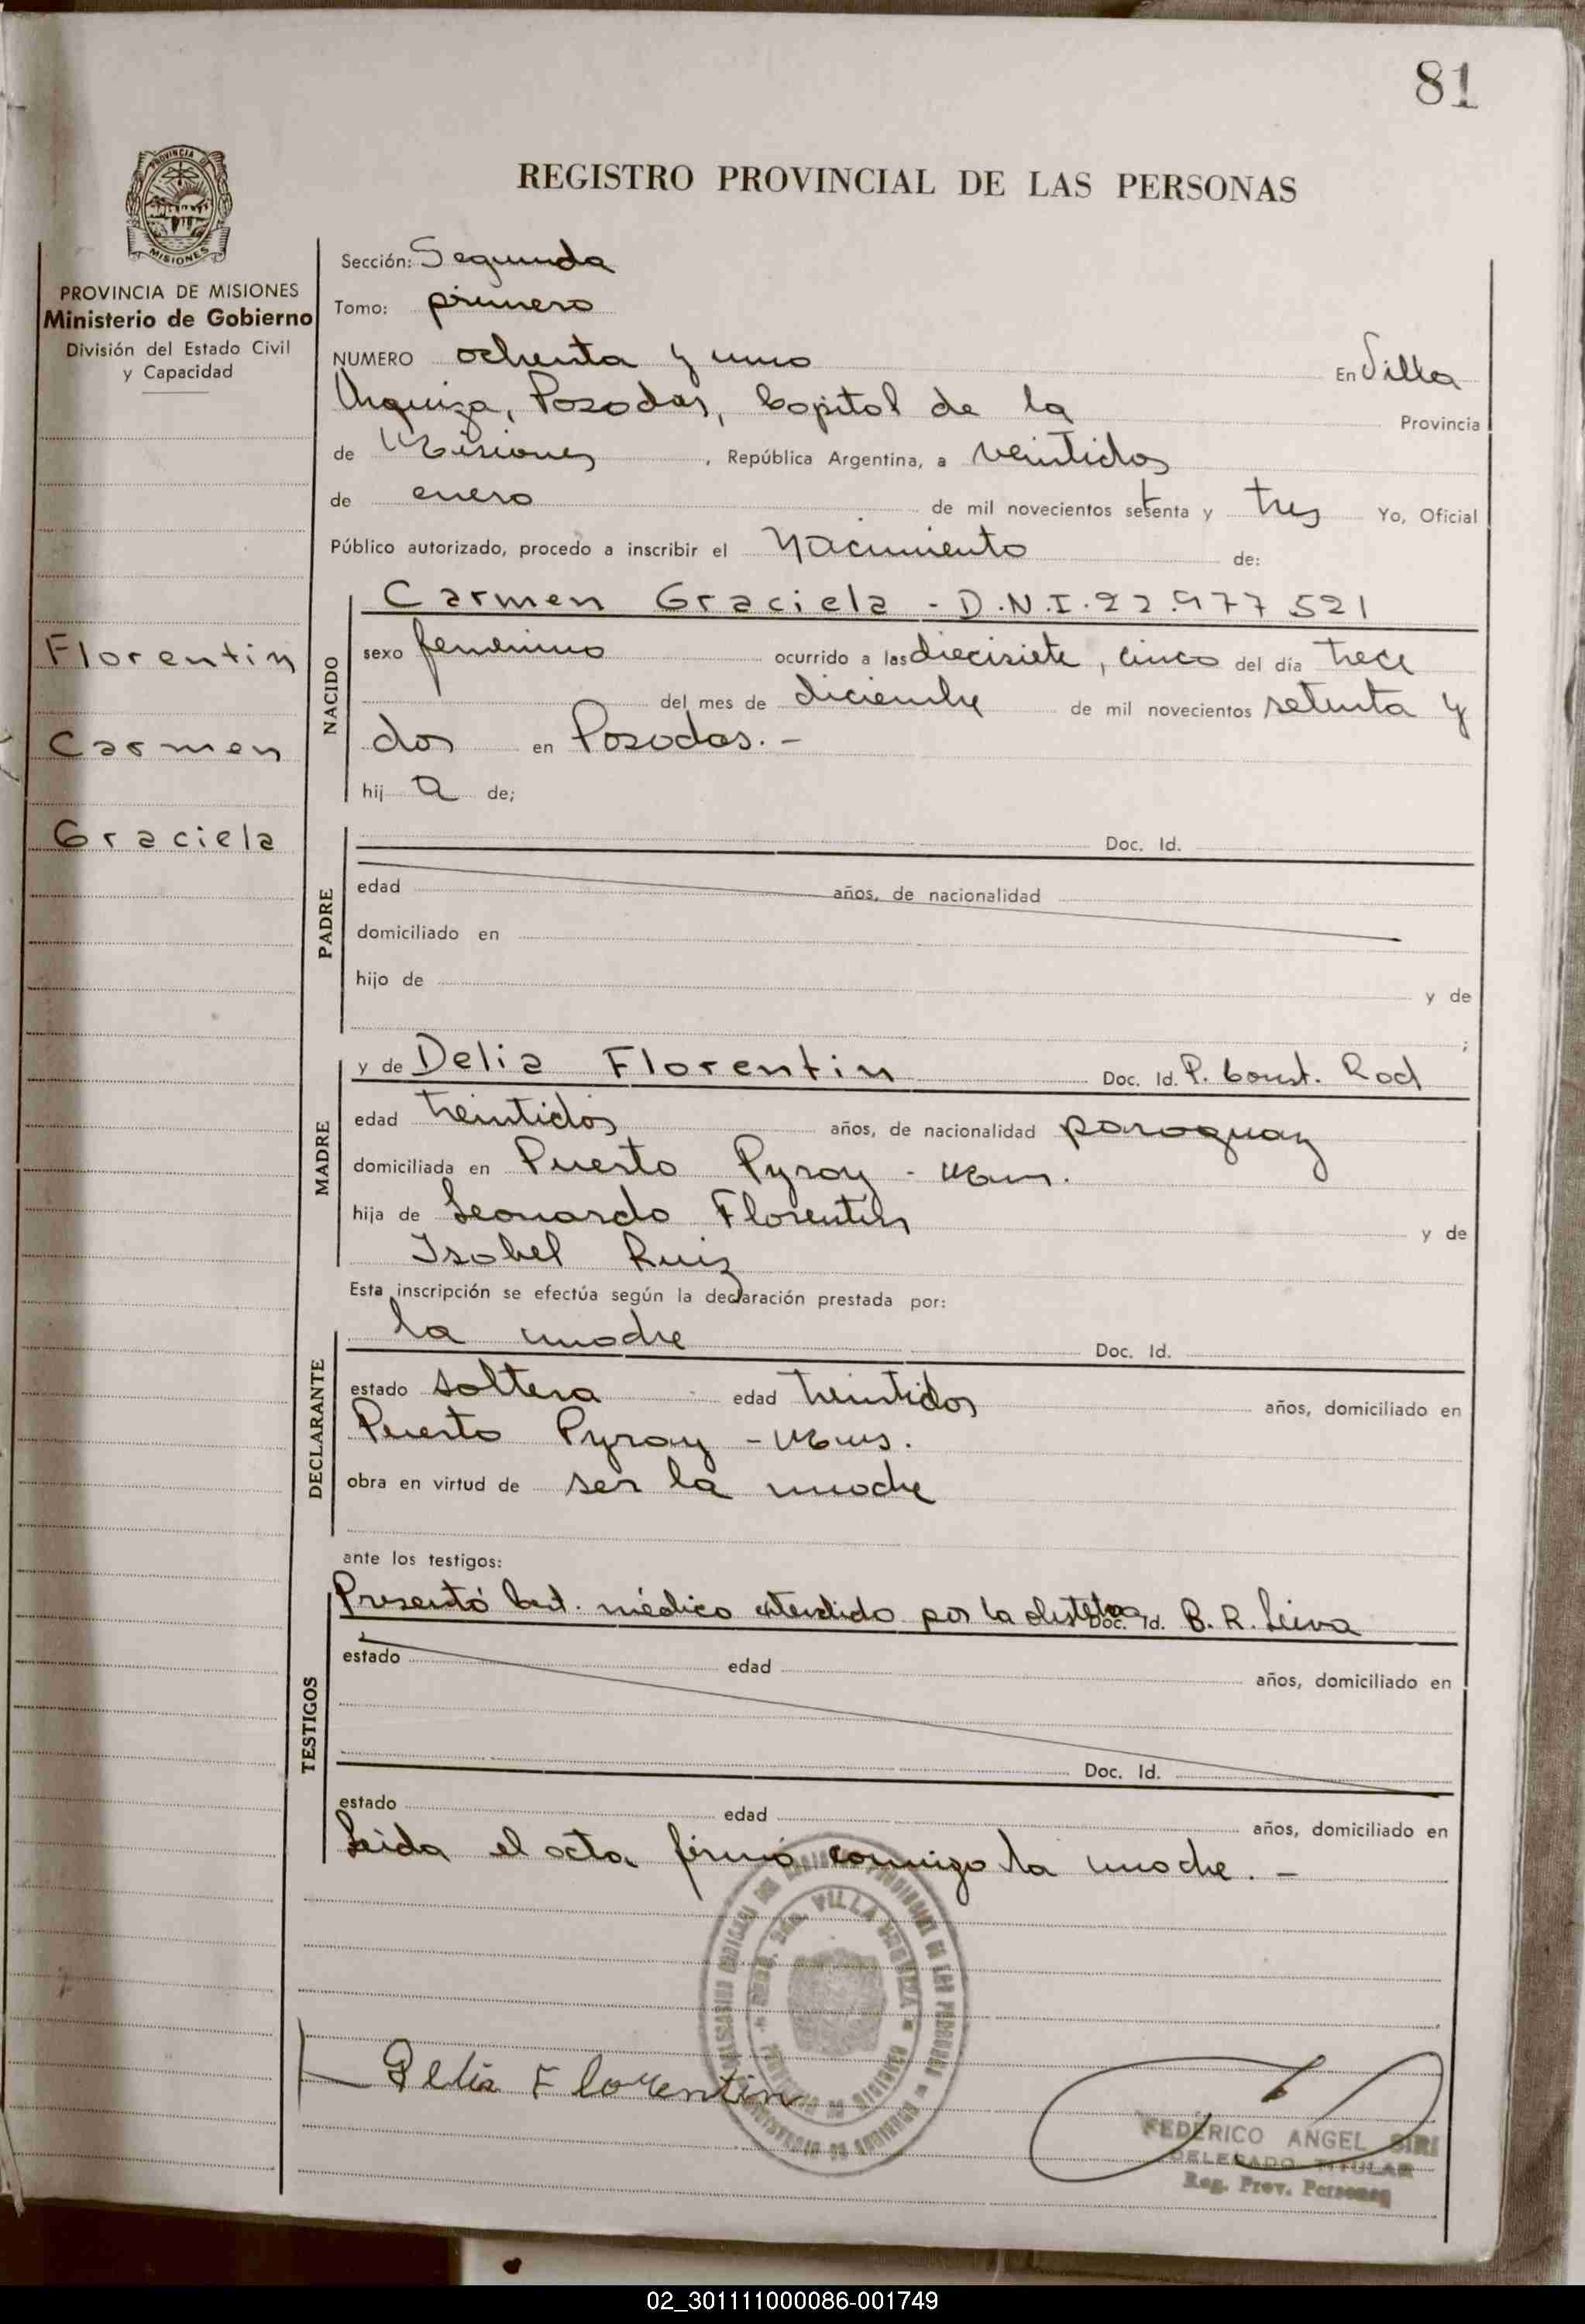 81
PROVINCIA DE MISIONES
REGISTRO PROVINCIAL DE LAS PERSONAS
PROVINCIA DE MISIONES
Ministerio de Gobierno
División del Estado Civil
y Capacidad
Florentin
Carmen
Graciela
Sección: Segunda
Tomo: primero
NUMERO ochenta y uno En Villa
Urquiza, Posadas, Capital de la Provincia
de Misiones, República Argentina, a veintidos
de enero de mil novecientos setenta y tres Yo, Oficial
Público autorizado, procedo a inscribir el Nacimiento de:
NACIDO
Carmen Graciela - D.N.I. 22.977 521
sexo femenino ocurrido a las diecisiete, cinco del día trece
del mes de diciembre de mil novecientos setenta y
dos en Posadas. -
hij a de;
PADRE
Doc. Id.
edad años, de nacionalidad
domiciliado en
hijo de y de
;
MADRE
y de Delia Florentin Doc. Id. P. Const. Rod
edad treintidós años, de nacionalidad paraguay
domiciliada en Puerto Pyray - Mnes.
hija de Leonardo Florentín y de
Isabel Ruiz
Esta inscripción se efectúa según la declaración prestada por:
DECLARANTE
la madre Doc. Id.
estado soltera edad treintidos años, domiciliado en
Puerto Pyray - Mnes.
obra en virtud de ser la madre
ante los testigos:
TESTIGOS
Presentó Cert. médico extendido por la obstetra Doc. Id. B. R. Leiva
estado edad años, domiciliado en
Doc. Id.
estado edad años, domiciliado en
Leida el acta firmó conmigo la madre. -
VILLA URQUIZA
Delia Florentin
FEDERICO ANGEL SIRI
DELEGADO TITULAR
Reg. Prov. Personas
02_301111000086-001749